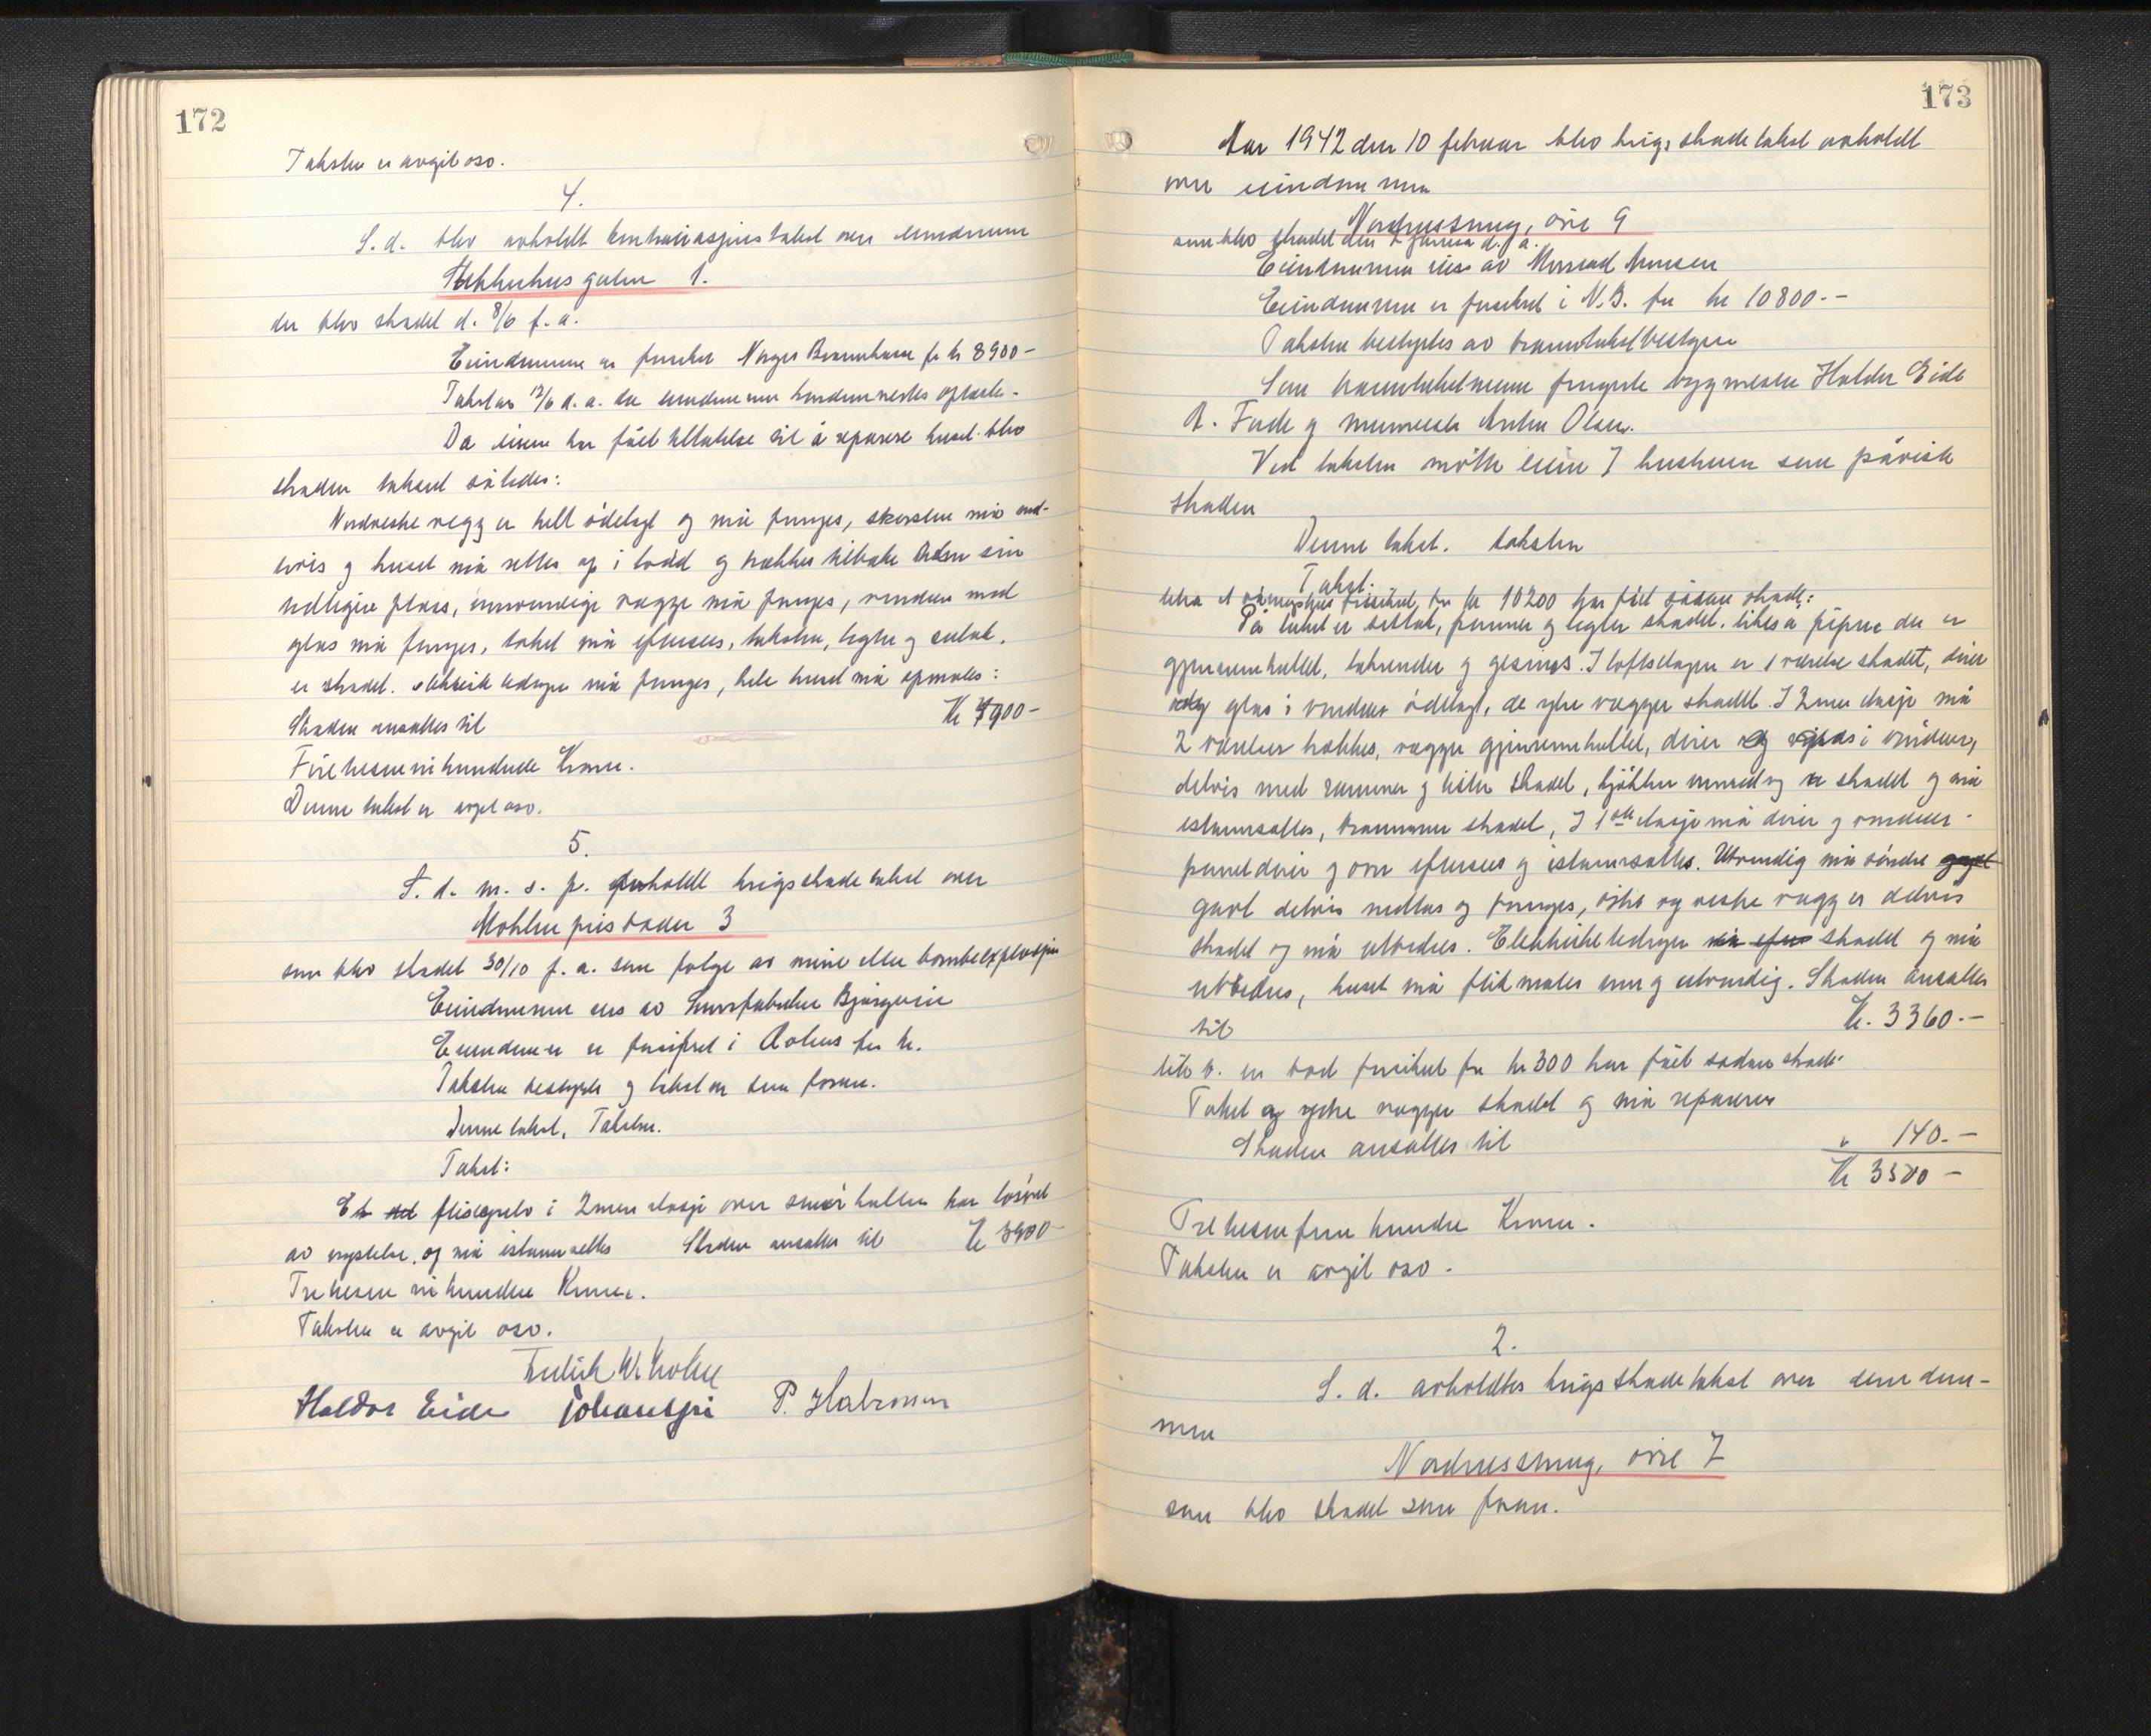 172
Taksten er avgit oso.
4.
S. d. blev avholdt takst over eiendommen
gaten 1.
der blev skadet d. 8/6 f. a.
Eiendommen er Norges Brannkasse for kr 8900-
Takst av 12/6 d. a. da eiendommen
Da eieren har fåt tillatelse til å reparere huset blev
skaden taksert således:
Nordvestre vegg er helt ödelagt og må fornyes, skorsten må
delvis og huset må rettes op i lodd og trekkes tilbake til sin
plass, innvendige vegge må fornyes, vinduer med
glas må fornyes, taket må eftersees, taksten, legter og sutak
er skadet. elektrisk ledninger må fornyes, hele huset må opmales:
Skaden ansattes til Kr 4900-
Fire tusen ni hundrede Kroner.
Denne takst er avgit oso.
5.
S. d. m. s. p. avholdt krigsskadetakst over
Möhlenprisbakken 3
som blev skadet 30/10 f. a. som fölge av mine eller bombeexplosjon
Eiendommen eies av Smörfabrikken Björgvin
Eiendommen er forsikret i Aolus for kr.
Takstens bestyrer og takstm. som forran.
Denne takst. Taksten.
Takst:
Et flisegulv i 2nen etasje over smörhallen har lösnet
av rystelse, og må istannsettes Skaden ansattes til Kr 3900-
Tre tusen ni hundre Kroner.
Taksten er avgit oso.
Halddor Eide Johansen P. Halvorsen
173
Aar 1942 den 10 februar blev krigsskadetakst avholdt
over eiendommen
Nordnessmug, övre 9
som blev skadet den januar d. a.
Eiendommen eies av Hansen
Eiendommen er forsikret i N.B. for kr 10800.-
Taksten bestyrtes av branntakstbestyrer
Som branntakstmenn fungerte byggmester Haldor Eide
A. Fade og murmester Anton Olsen.
Ved taksten mötte eieren I hustruen som påviste
skaden
Denne takst. taksten
Takst.
litra a våningshus forsikret for kr 10200 har fåt sådan skade:
På taket er sutak, panner og legter skadet. likesa pipene der er
gjennemhullet, takrender og gesims. I loftsetagen er 1 værelse skadet, dörer
og glas i vinduer ödelagt, de ytre vegger skadet. I 2nen etasje må
2 værelser trekkes, vegger gjennemhullet, dörer og glas i vinduer,
delvis med rammer og lister skadet, kjökken er skadet og må
istannsettes, skadet, I 1ste etasje må dörer og vinduer
paneldörer og ovn eftersees og istannsettes. Utvendig må söndre
gavl delvis nedtas og fornyes, östre og vestre vegg er delvis
skadet og må utbedres. Elektriske ledninger skadet og må
utbedres, huset må flikmales inn og utvendig. Skaden ansattes
til Kr. 3360.-
litr b. en bod forsikret for kr 300 har fåt sådan skade.
Taket og ytre vegger skadet og må repareres
Skaden ansattes til " 140.-
Kr 3500-
Tre tusen fem hundre Kroner.
Taksten er avgit oso.
2.
S. d. avholdtes krigsskadetakst over eiendom-
men
Nordnessmug, övre 7
som blev skadet som forran.